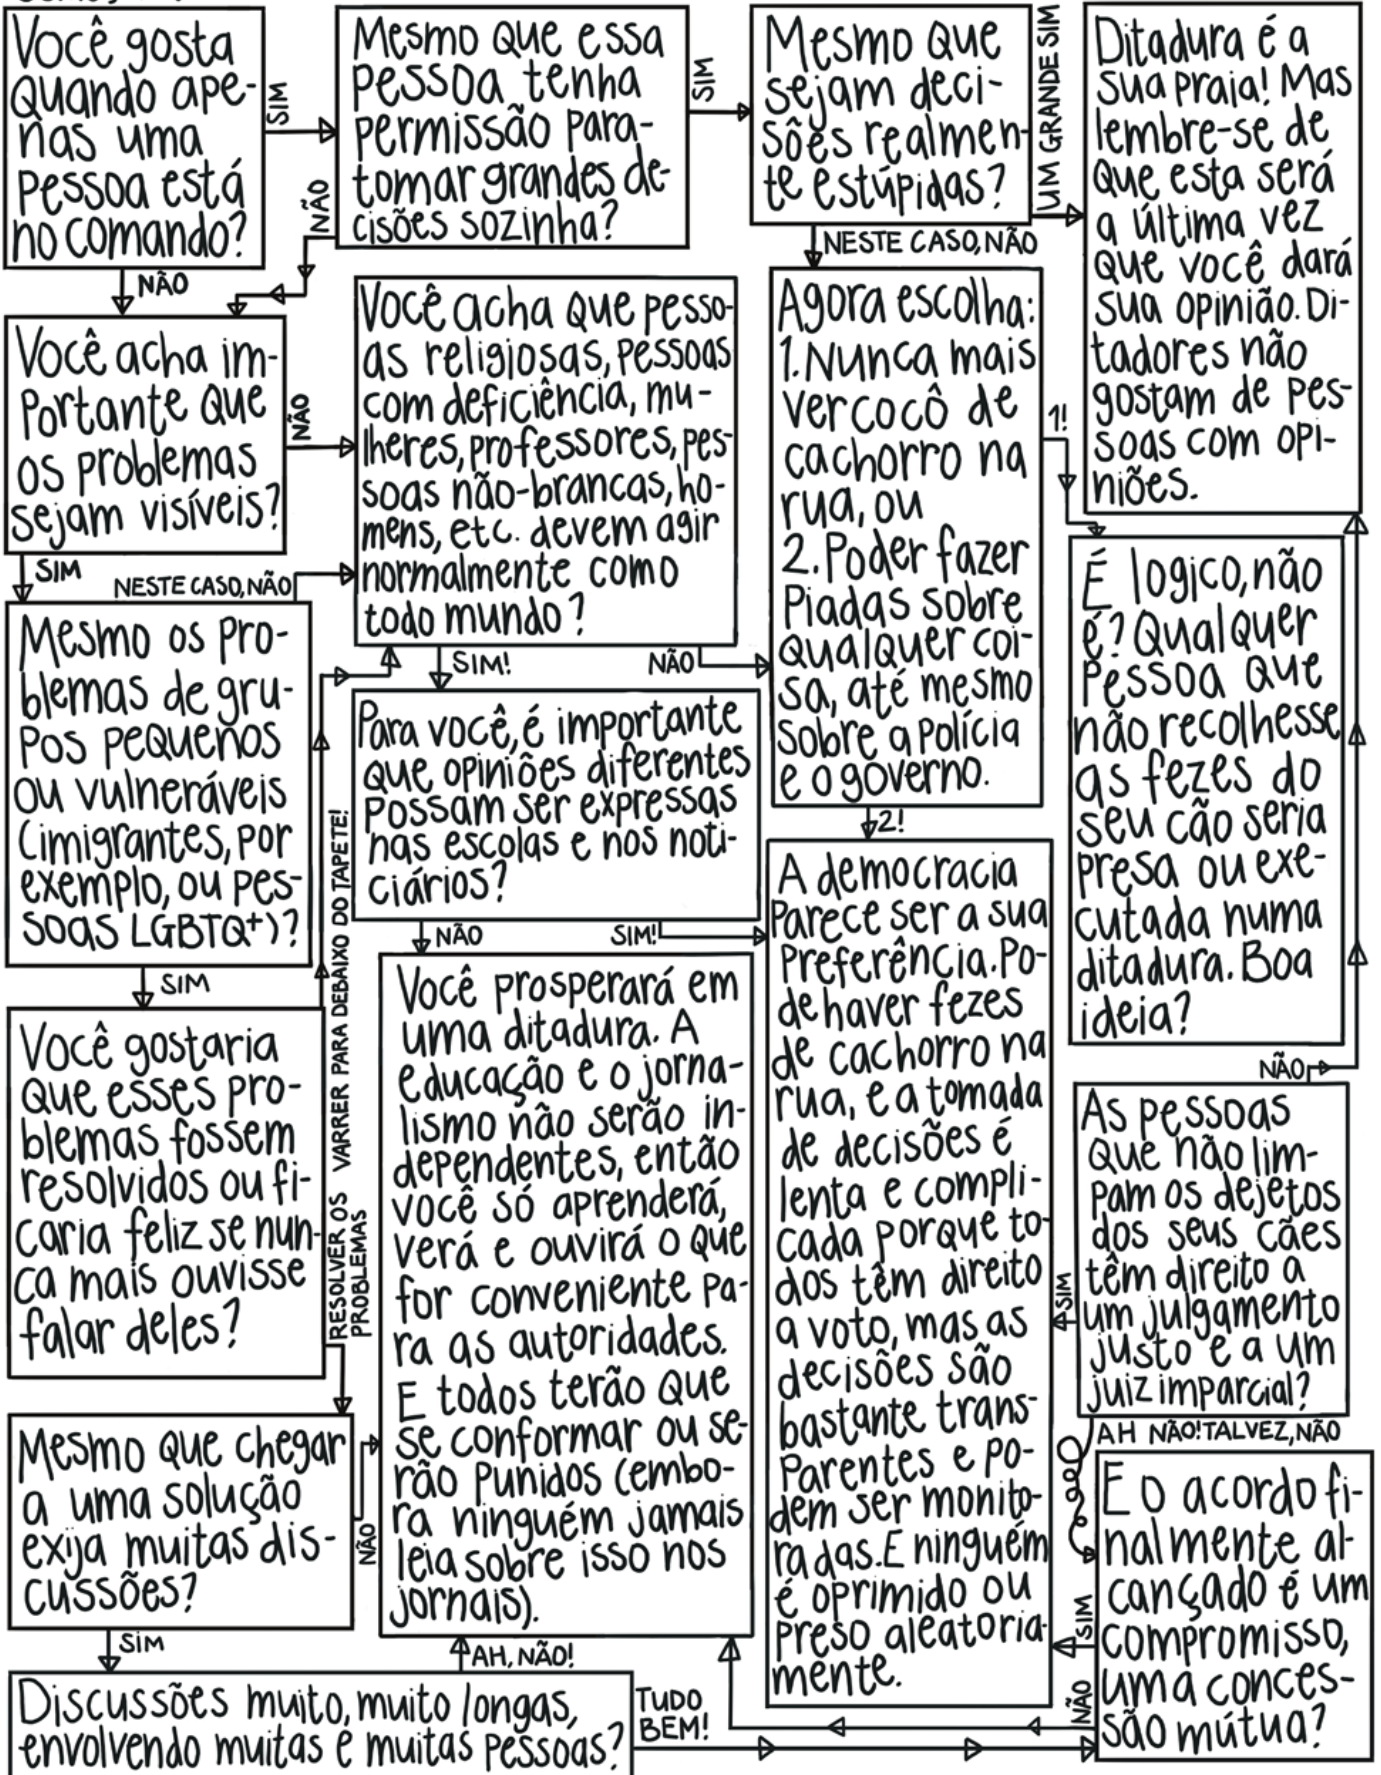 Você gosta
quando ape-
nas uma
pessoa está
no comando?
SIM
NÃO
Mesmo que essa
pessoa tenha
permissão para-
tomar grandes de-
cisões sozinha?
SIM
NÃO
Mesmo que
sejam deci-
sões realmen-
te estúpidas?
UM GRANDE SIM
NESTE CASO, NÃO
Ditadura é a
sua praia! Mas
lembre-se de
que esta será
a última vez
que você dará
sua opinião. Di-
tadores não
gostam de pes-
soas com opi-
niões.
Você acha im-
portante que
os problemas
sejam visíveis?
NÃO
SIM
Você acha que pesso-
as religiosas, pessoas
com deficiência, mu-
lheres, professores, pes-
soas não-brancas, ho-
mens, etc. devem agir
normalmente como
todo mundo?
SIM!
NÃO
Agora escolha:
1. Nunca mais
ver cocô de
cachorro na
rua, ou
2. Poder fazer
piadas sobre
qualquer coi-
sa, até mesmo
sobre a polícia
e o governo.
1!
2!
É logico, não
é? Qualquer
pessoa que
não recolhesse
as fezes do
seu cão seria
presa ou exe-
cutada numa
ditadura. Boa
ideia?
NESTE CASO, NÃO
Mesmo os pro-
blemas de gru-
pos pequenos
ou vulneráveis
(imigrantes, por
exemplo, ou pes-
soas LGBTQ+)?
SIM
Para você, é importante
que opiniões diferentes
possam ser expressas
nas escolas e nos noti-
ciários?
NÃO
SIM!
A democracia
parece ser a sua
preferência. Po-
de haver fezes
de cachorro na
rua, e a tomada
de decisões é
lenta e compli-
cada porque to-
dos têm direito
a voto, mas as
decisões são
bastante trans-
parentes e po-
dem ser monito-
radas. E ninguém
é oprimido ou
preso aleatoria-
mente.
Você gostaria
que esses pro-
blemas fossem
resolvidos ou fi-
caria feliz se nun-
ca mais ouvisse
falar deles?
VARRER PARA DEBAIXO DO TAPETE!
RESOLVER OS
PROBLEMAS
Você prosperará em
uma ditadura. A
educação e o jorna-
lismo não serão in-
dependentes, então
você só aprenderá,
verá e ouvirá o que
for conveniente pa-
ra as autoridades.
E todos terão que
se conformar ou se-
rão punidos (embo-
ra ninguém jamais
leia sobre isso nos
jornais).
NÃO
As pessoas
que não lim-
pam os dejetos
dos seus cães
têm direito a
um julgamento
justo e a um
juiz imparcial?
SIM
AH NÃO! TALVEZ, NÃO
Mesmo que chegar
a uma solução
exija muitas dis-
cussões?
NÃO
SIM
E o acordo fi-
nalmente al-
cançado é um
compromisso,
uma conces-
são mútua?
SIM
NÃO
AH, NÃO!
Discussões muito, muito longas,
envolvendo muitas e muitas pessoas?
TUDO
BEM!